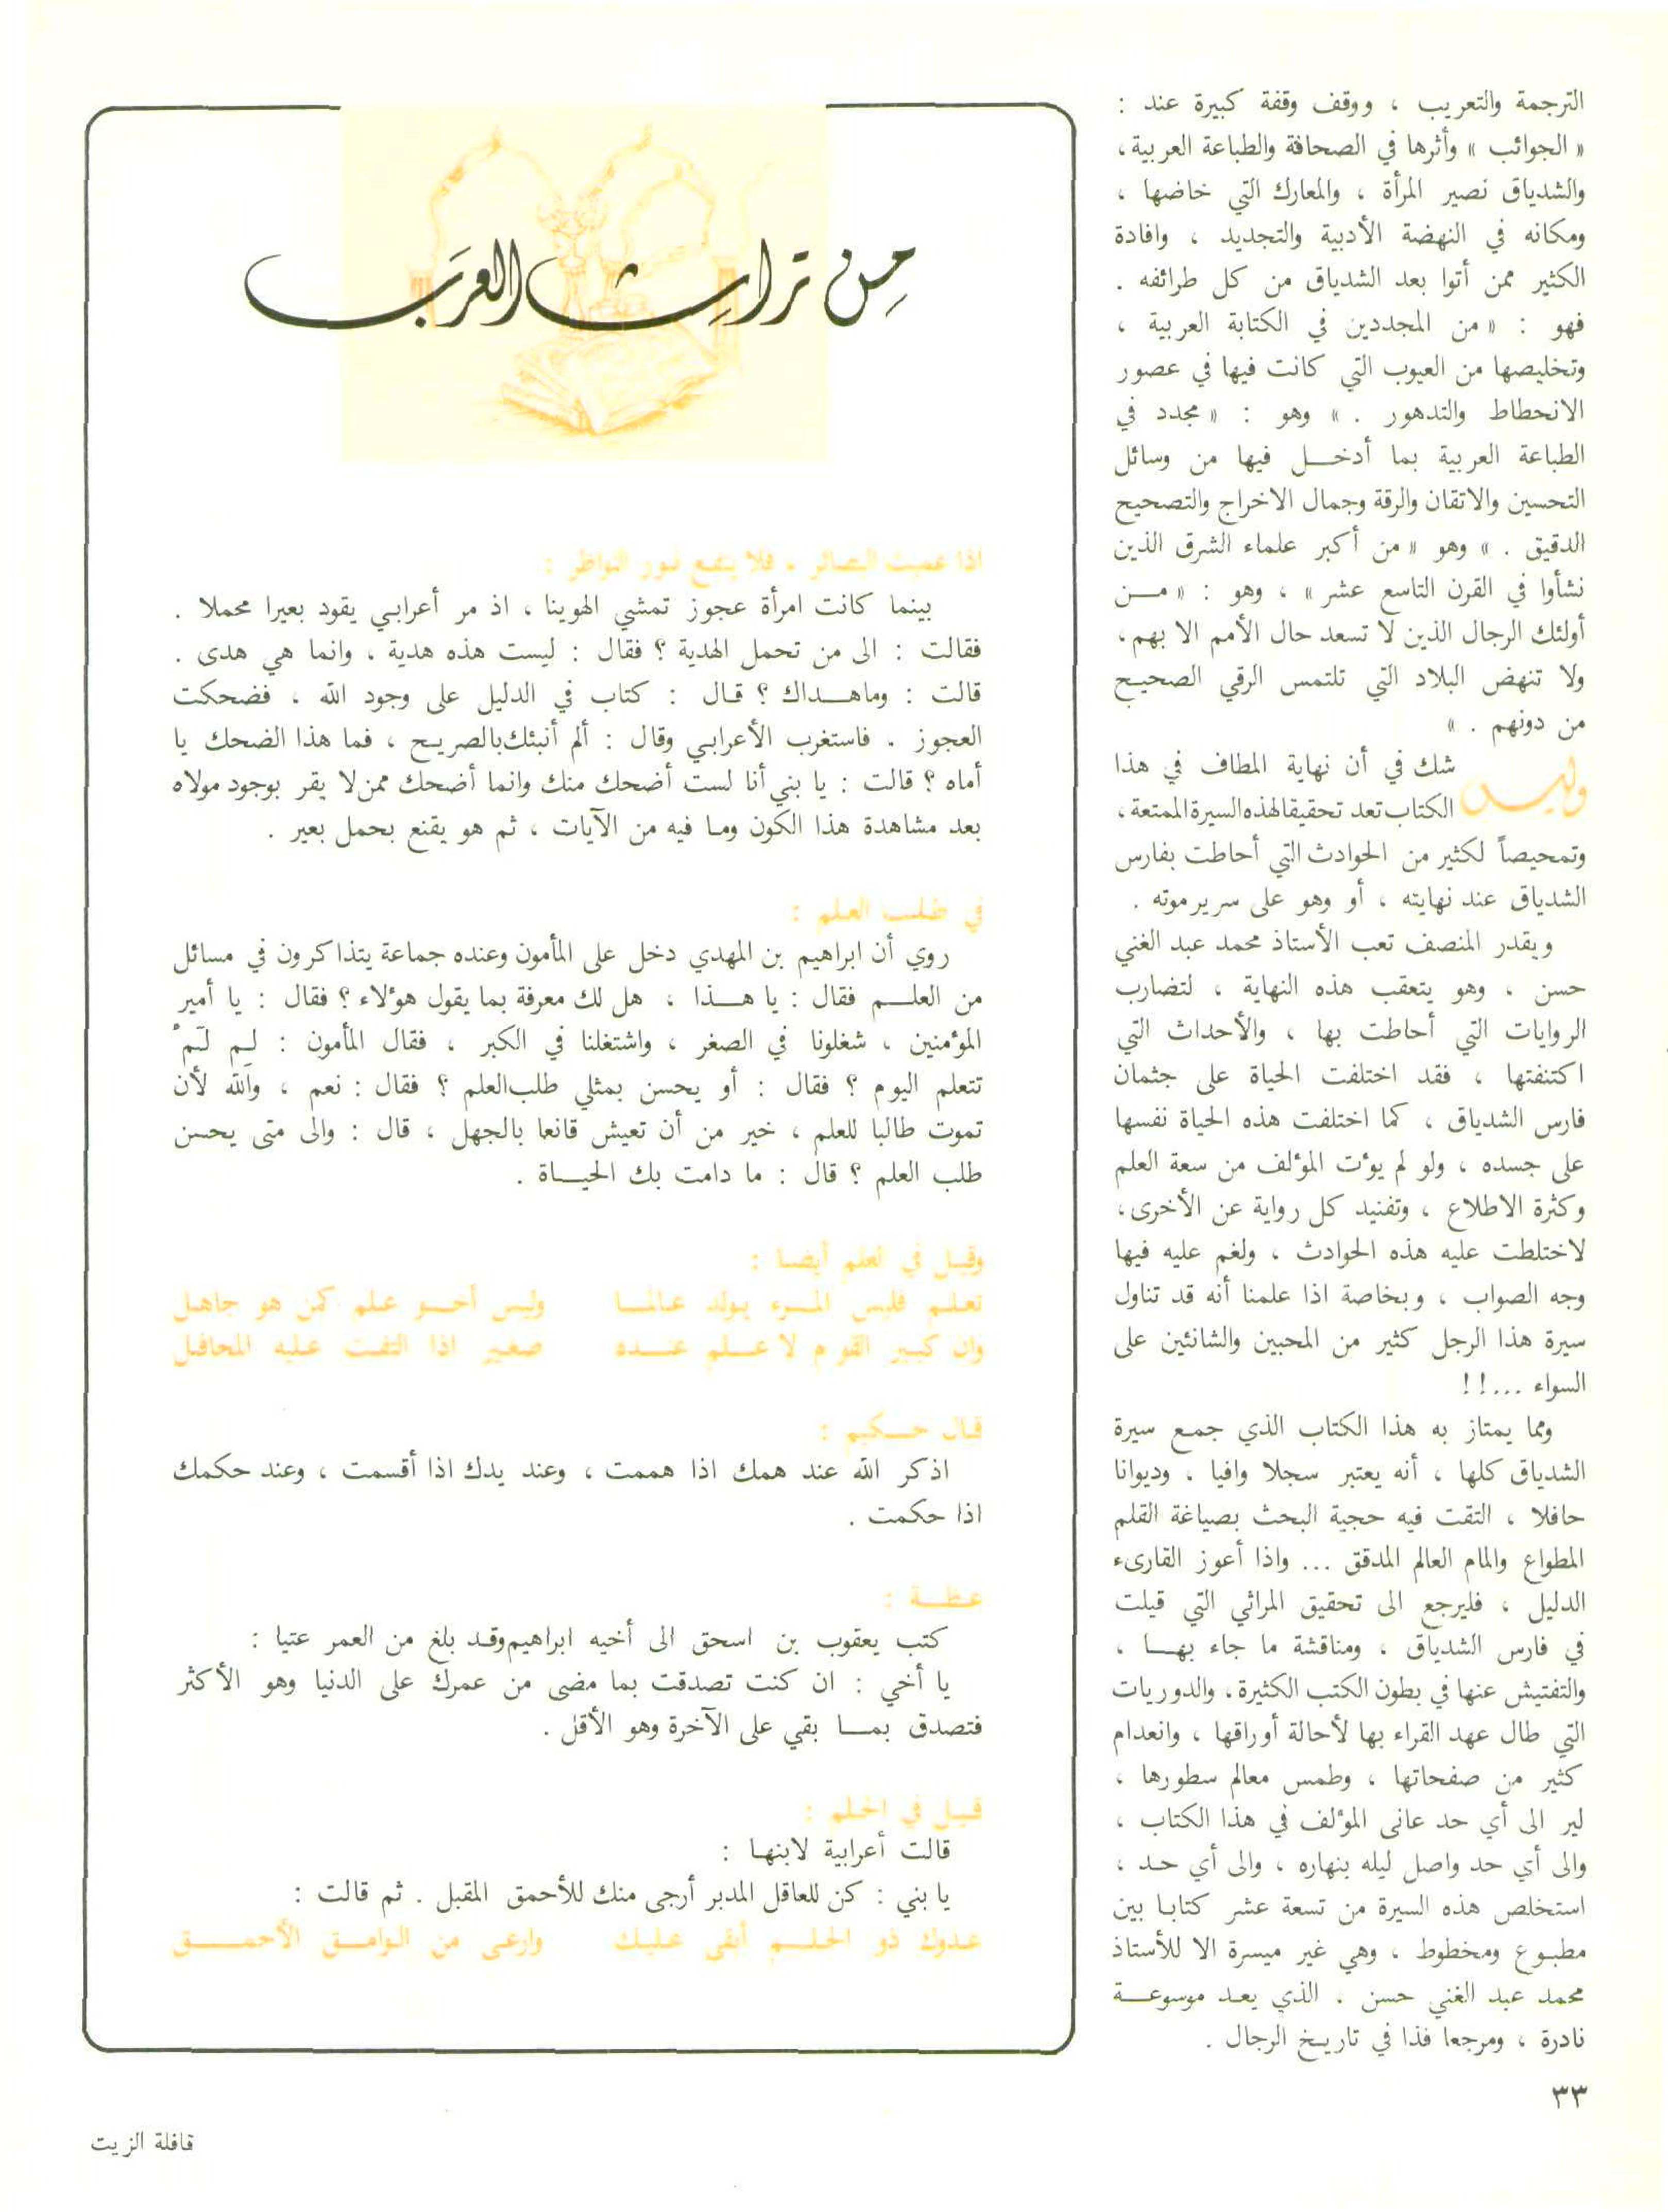 الترجمة والتعريب ، ووقف وقفة كبيرة عند :
« الجوائب » وأثرها في الصحافة والطباعة العربية ،
والشدياق نصير المرأة ، والمعارك التي خاضها ،
ومكانه في النهضة الأدبية والتجديد ، وافادة
الكثير ممن أتوا بعد الشدياق من كل طرائفه .
فهو : « من المجددين في الكتابة العربية ،
وتخليصها من العيوب التي كانت فيها في عصور
الانحطاط والتدهور . » وهو : « مجدد في
الطباعة العربية بما أدخــل فيها من وسائل
التحسين والاتقان والرقة وجمال الاخراج والتصحيح
الدقيق . » وهو « من أكبر علماء الشرق الذين
نشأوا في القرن التاسع عشر » ، وهو : « مــن
أولئك الرجال الذين لا تسعد حال الأمم الا بهم ،
ولا تنهض البلاد التي تلتمس الرقي الصحيح
من دونهم . »
وليس شك في أن نهاية المطاف في هذا
الكتاب تعد تحقيقا لهذه السيرة الممتعة ،
وتمحيصاً لكثير من الحوادث التي أحاطت بفارس
الشدياق عند نهايته ، أو وهو على سرير موته .
ويقدر المنصف تعب الأستاذ محمد عبد الغني
حسن ، وهو يتعقب هذه النهاية ، لتضارب
الروايات التي أحاطت بها ، والأحداث التي
اكتنفتها ، فقد اختلفت الحياة على جثمان
فارس الشدياق ، كما اختلفت هذه الحياة نفسها
على جسده ، ولو لم يؤت المؤلف من سعة العلم
وكثرة الاطلاع ، وتفنيد كل رواية عن الأخرى ،
لاختلطت عليه هذه الحوادث ، ولغم عليه فيها
وجه الصواب ، وبخاصة اذا علمنا أنه قد تناول
سيرة هذا الرجل كثير من المحبين والشانئين على
السواء ...!!
ومما يمتاز به هذا الكتاب الذي جمع سيرة
الشدياق كلها ، أنه يعتبر سجلا وافيا ، وديوانا
حافلا ، التقت فيه حجية البحث بصياغة القلم
المطواع والمام العالم المدقق ... واذا أعوز القارىء
الدليل ، فليرجع الى تحقيق المراثي التي قيلت
في فارس الشدياق ، ومناقشة ما جاء بهــا ،
والتفتيش عنها في بطون الكتب الكثيرة ، والدوريات
التي طال عهد القراء بها لأحالة أوراقها ، وانعدام
كثير من صفحاتها ، وطمس معالم سطورها ،
لير الى أي حد عانى المؤلف في هذا الكتاب ،
والى أي حد واصل ليله بنهاره ، والى أي حـد ،
استخلص هذه السيرة من تسعة عشر كتابا بين
مطبوع ومخطوط ، وهي غير ميسرة الا للأستاذ
محمد عبد الغني حسن ، الذي يعد موسوعــة
نادرة ، ومرجعا فذا في تاريخ الرجال .
مِن تراثِ العرَب
اذا عميت البصائر ، فلا ينفع نور النواظر :
بينما كانت امرأة عجوز تمشي الهوينا ، اذ مر أعرابي يقود بعيرا محملا .
فقالت : الى من تحمل الهدية ؟ فقال : ليست هذه هدية ، وانما هي هدى .
قالت : وماهــداك ؟ قـال : كتاب في الدليل على وجود الله ، فضحكت
العجوز . فاستغرب الأعرابي وقال : ألم أنبئك بالصريح ، فما هذا الضحك يا
أماه ؟ قالت : يا بني أنا لست أضحك منك وانما أضحك ممن لا يقر بوجود مولاه
بعد مشاهدة هذا الكون وما فيه من الآيات ، ثم هو يقنع بحمل بعير .
في طلب العلم :
روي أن ابراهيم بن المهدي دخل على المأمون وعنده جماعة يتذاكرون في مسائل
من العلــم فقال : يا هــذا ، هل لك معرفة بما يقول هؤلاء ؟ فقال : يا أمير
المؤمنين ، شغلونا في الصغر ، واشتغلنا في الكبر ، فقال المأمون : لِم لَمْ
تتعلم اليوم ؟ فقال : أو يحسن بمثلي طلب العلم ؟ فقال : نعم ، والله لأن
تموت طالبا للعلم ، خير من أن تعيش قانعا بالجهل ، قال : والى متى يحسن
طلب العلم ؟ قال : ما دامت بك الحيــاة .
وقيل في العلم أيضا :
تعلم فليس المـرء يولد عالمــا وليس أخــو علم كمن هو جاهل
وان كبير القوم لا علــم عنــده صغير اذا التفت عليه المحافل
قال حــكيم :
اذكر الله عند همك اذا هممت ، وعند يدك اذا أقسمت ، وعند حكمك
اذا حكمت .
عظــة :
كتب يعقوب بن اسحق الى أخيه ابراهيم وقـد بلغ من العمر عتيا :
يا أخي : ان كنت تصدقت بما مضى من عمرك على الدنيا وهو الأكثر
فتصدق بمــا بقي على الآخرة وهو الأقل .
قيـل في الحلم :
قالت أعرابية لابنها :
يا بني : كن للعاقل المدبر أرجى منك للأحمق المقبل . ثم قالت :
عـدوك ذو الحلــم أبقى عليـك وارعـى من الوامــق الأحمــق
٣٣
قافلة الزيت